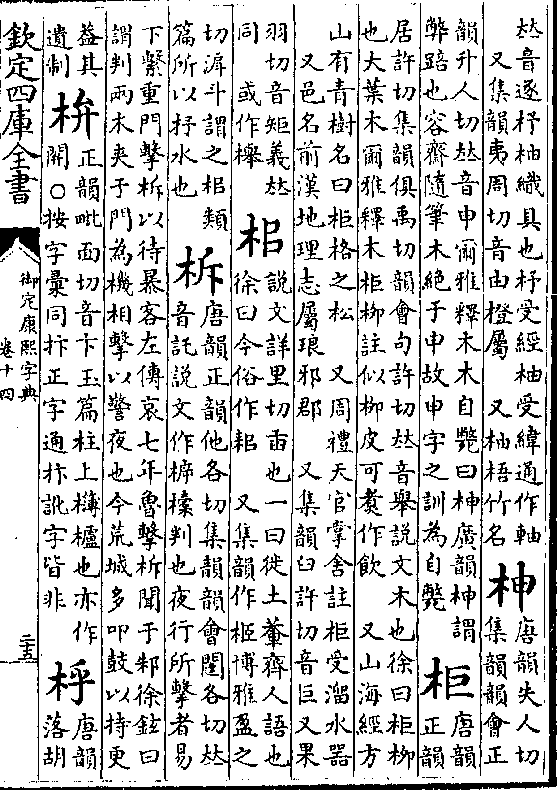 𠀤音逐杼柚織具也杼受經柚受緯通作軸
又集韻夷周切音由橙屬 又柚梧竹名
柛
唐韻失人切
集韻韻會正
韻升人切𠀤音申爾雅釋木木自斃曰柛廣韻柛謂
弊踣也容齋隨筆木絶于申故申字之訓為自斃
柜
唐韻
正韻
居許切集韻俱禹切韻會句許切𠀤音舉說文木也徐曰柜柳
也大葉木爾雅釋木柜柳註似柳皮可煑作飲 又山海經方
山有青樹名曰柜格之松 又周禮天官掌舍註柜受溜水器
又邑名前漢地理志屬琅邪郡 又集韻臼許切音巨又果
羽切音矩義𠀤
同 或作櫸
㭒
說文詳里切臿也一曰徙土輂齊人語也
徐曰今俗作耜 又集韻作 博雅盈之
切㴽斗謂之㭒類
篇所以抒水也
柝
唐韻正韻他各切集韻韻會闥各切𠀤
音託說文作 判也夜行所擊者易
下繫重門擊柝以待暴客左傳哀七年魯擊柝聞于邾徐鉉曰
謂判兩木夾于門為機相擊以警夜也今荒城多叩鼓以持更
葢其
遺制
㭓
正韻毗面切音卞玉篇柱上欂櫨也亦作
開○按字彙同抃正字通抃訛字皆非
㭔
唐韻
落胡
欽定四庫全書
御定康熙字典
卷十四
三十五